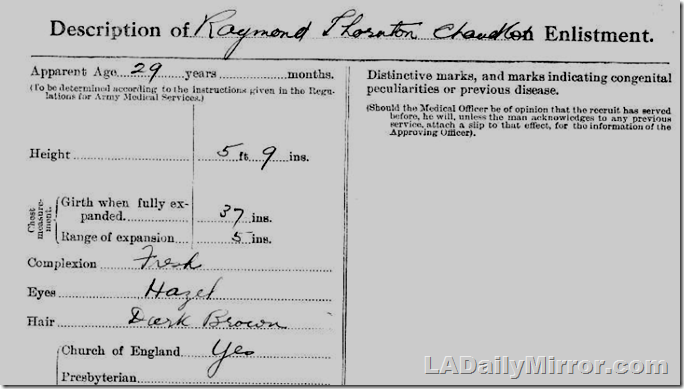 Description of Raymond Thornton Chandler on Enlistment.
Apparent Age 29 years months.
(To be determined according to the instructions given in the Regu-
lations for Army Medical Services.)
Height 5 ft. 9 ins.
Chest
measure-
ment.
Girth when fully ex-
panded 37 ins.
Range of expansion 5 ins.
Complexion Fresh
Eyes Hazel
Hair Dark Brown
Church of England Yes
Presbyterian
Distinctive marks, and marks indicating congenital
peculiarities or previous disease.
(Should the Medical Officer be of opinion that the recruit has served
before, he will, unless the man acknowledges to any previous
service, attach a slip to that effect, for the information of the
Approving Officer).
LADailyMirror.com